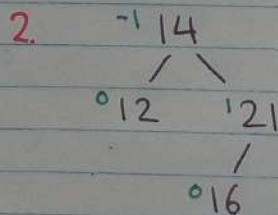 2. -1 14
0 12 1 21
0 16